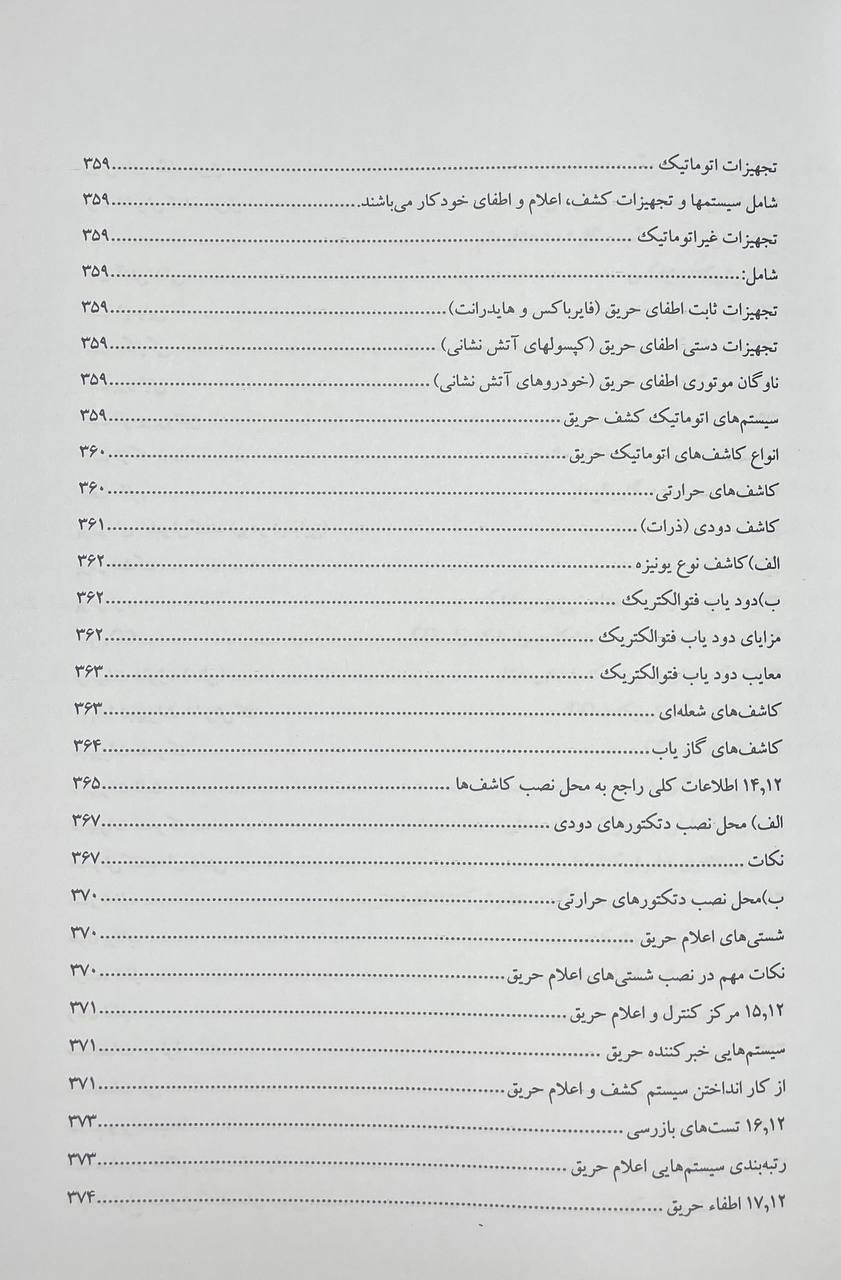 تجهیزات اتوماتیک ........ ۳۵۹
شامل سیستمها و تجهیزات کشف، اعلام و اطفای خودکار می‌باشند ........ ۳۵۹
تجهیزات غیراتوماتیک ........ ۳۵۹
شامل: ........ ۳۵۹
تجهیزات ثابت اطفای حریق (فایرباکس و هایدرانت) ........ ۳۵۹
تجهیزات دستی اطفای حریق (کپسولهای آتش نشانی) ........ ۳۵۹
ناوگان موتوری اطفای حریق (خودروهای آتش نشانی) ........ ۳۵۹
سیستم‌های اتوماتیک کشف حریق ........ ۳۵۹
انواع کاشف‌های اتوماتیک حریق ........ ۳۶۰
کاشف‌های حرارتی ........ ۳۶۰
کاشف دودی (ذرات) ........ ۳۶۱
الف)کاشف نوع یونیزه ........ ۳۶۲
ب)دود یاب فتوالکتریک ........ ۳۶۲
مزایای دود یاب فتوالکتریک ........ ۳۶۲
معایب دود یاب فتوالکتریک ........ ۳۶۳
کاشف‌های شعله‌ای ........ ۳۶۳
کاشف‌های گاز یاب ........ ۳۶۴
۱۴,۱۲ اطلاعات کلی راجع به محل نصب کاشف‌ها ........ ۳۶۵
الف) محل نصب دتکتورهای دودی ........ ۳۶۷
نکات ........ ۳۶۷
ب)محل نصب دتکتورهای حرارتی ........ ۳۷۰
شستی‌های اعلام حریق ........ ۳۷۰
نکات مهم در نصب شستی‌های اعلام حریق ........ ۳۷۰
۱۵,۱۲ مرکز کنترل و اعلام حریق ........ ۳۷۱
سیستم‌هایی خبرکننده حریق ........ ۳۷۱
از کار انداختن سیستم کشف و اعلام حریق ........ ۳۷۱
۱۶,۱۲ تست‌های بازرسی ........ ۳۷۳
رتبه‌بندی سیستم‌هایی اعلام حریق ........ ۳۷۳
۱۷,۱۲ اطفاء حریق ........ ۳۷۴